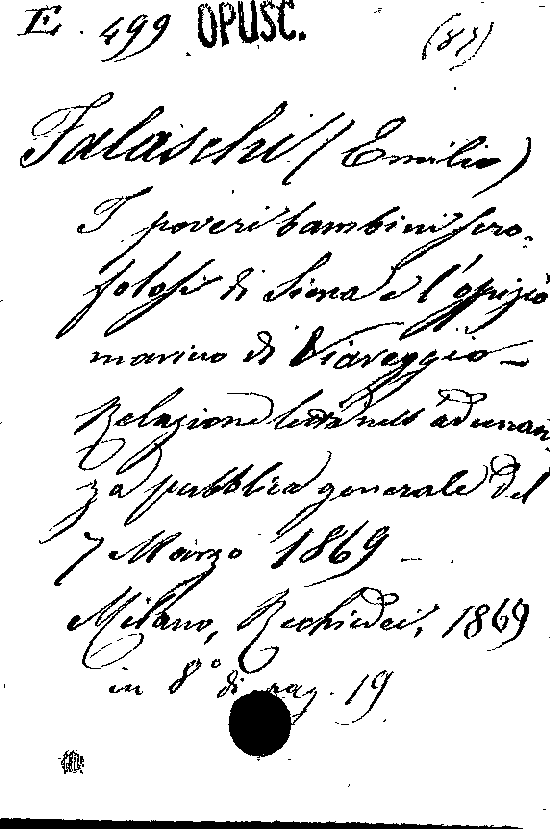 E. 499 OPUSC. (83)
Falaschi (Emilio)
I poveri bambini scro-
folosi di Siena e l'ospizio
marino di Viareggio —
Relazione letta nell'adunan-
za pubblica generale del
7 Marzo 1869 —
Milano, Rechiedei, 1869
in 8° di pag. 19